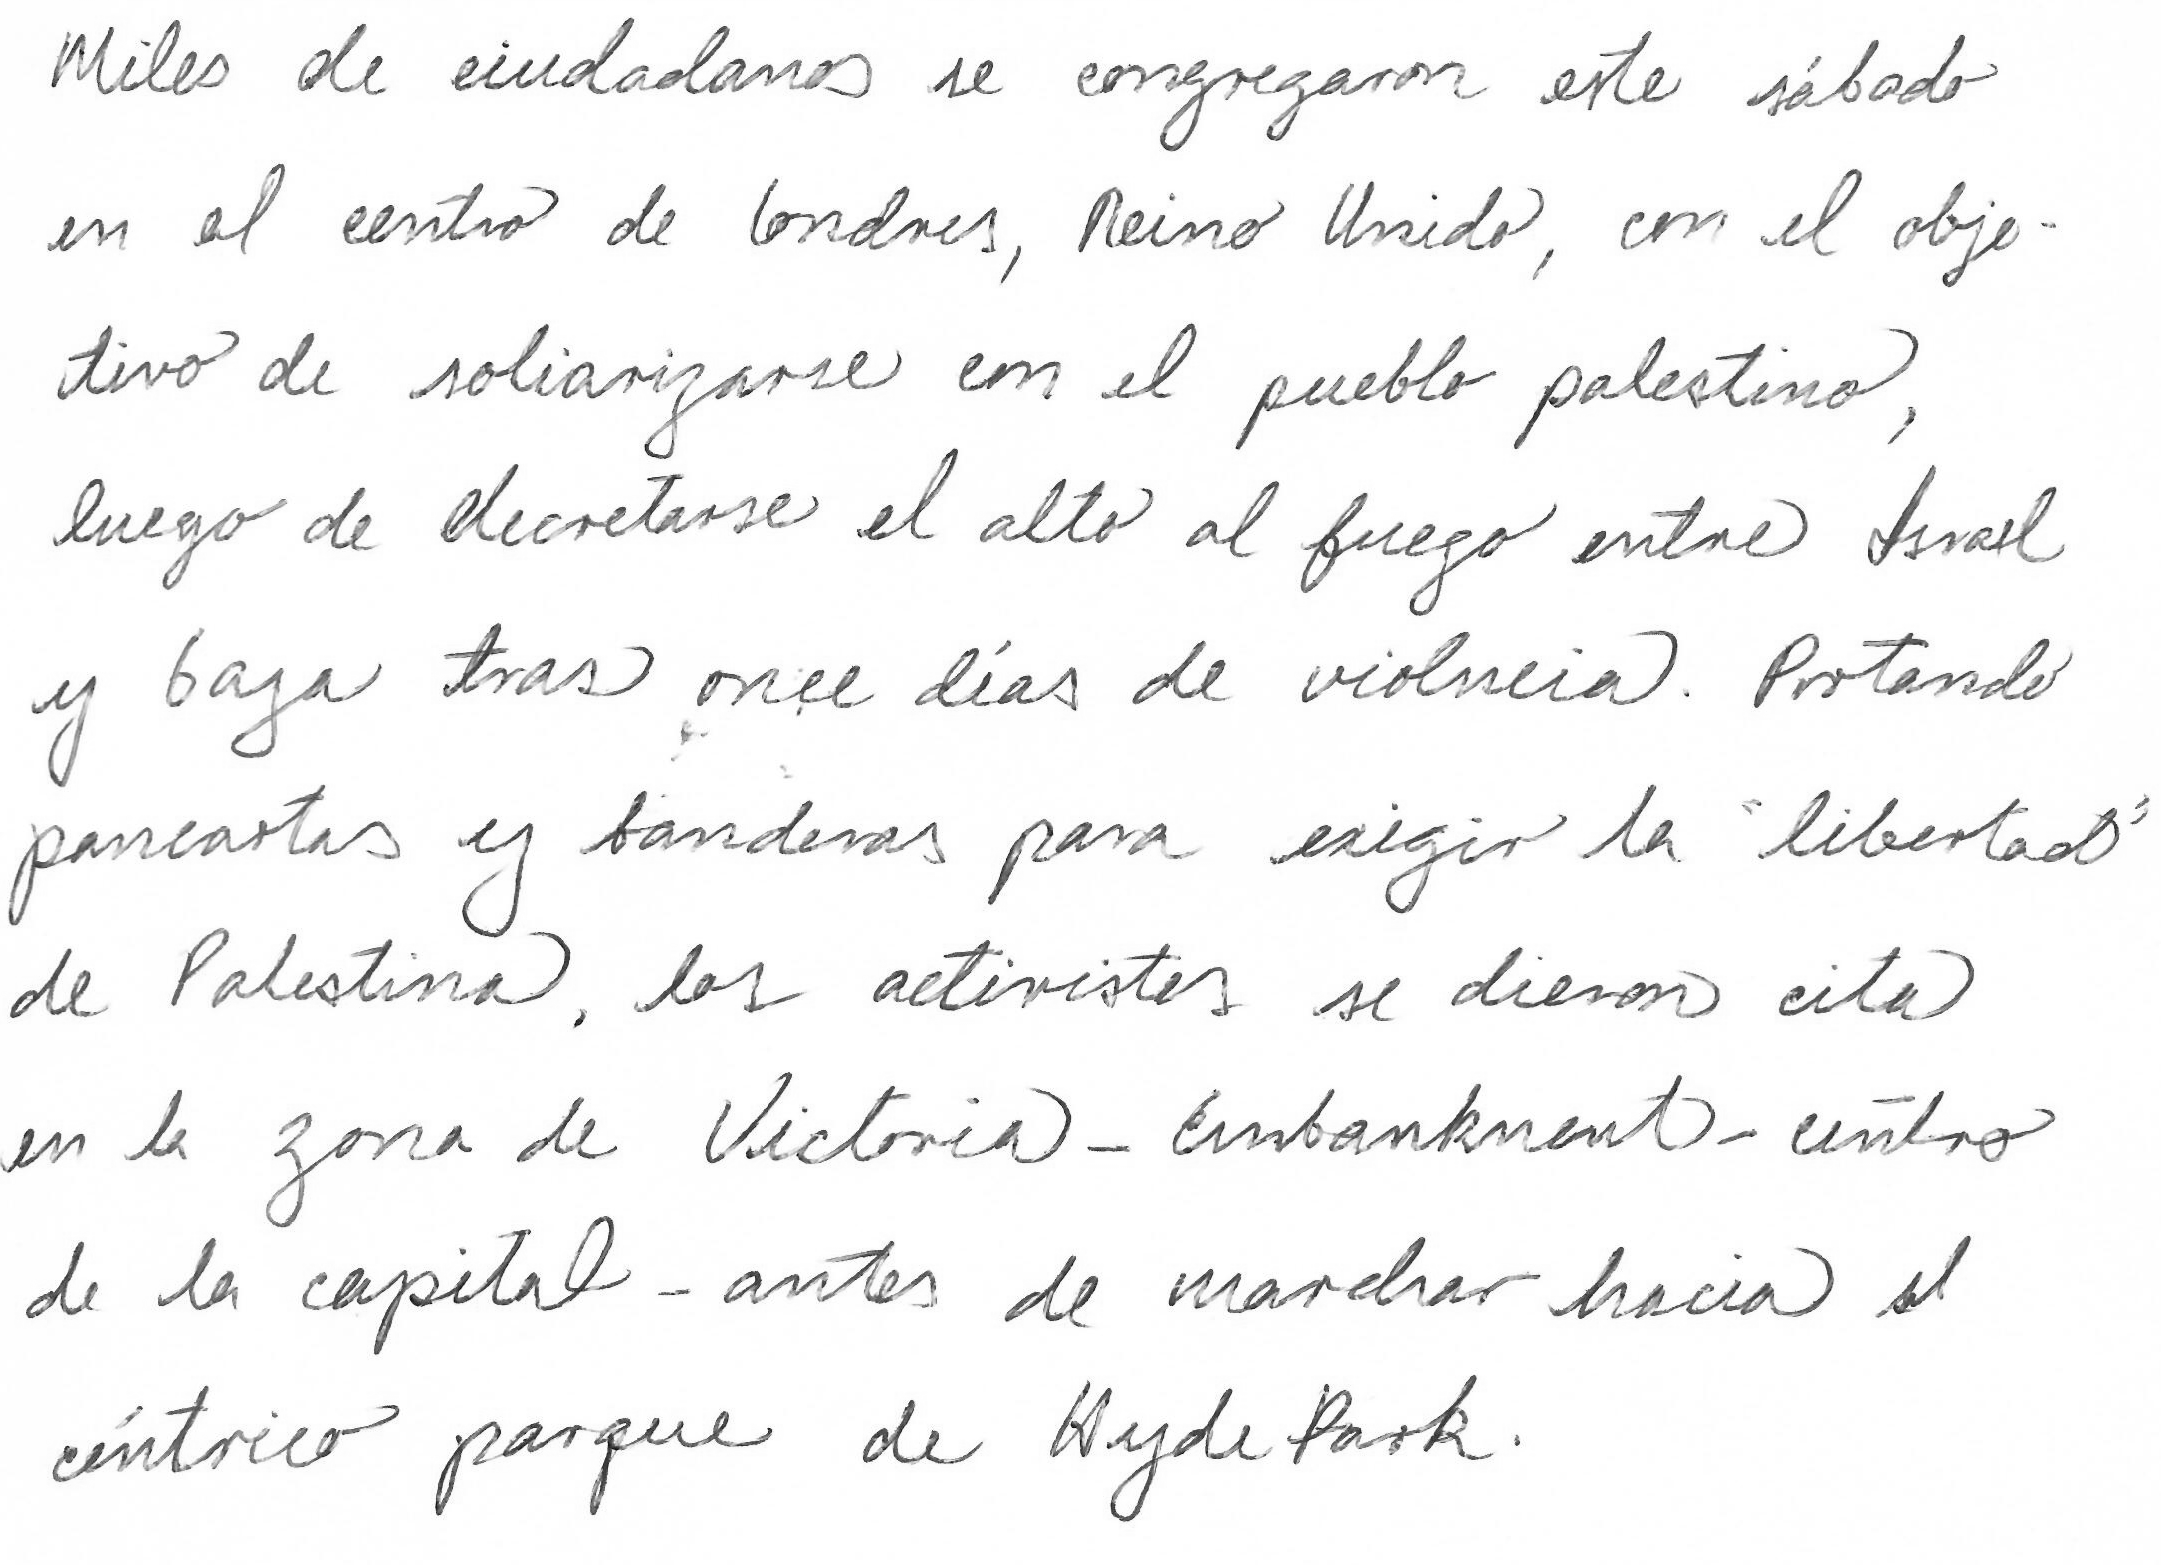 Miles de ciudadanos se congregaron este sábado
en el centro de Londres, Reino Unido, con el obje-
tivo de soliarizarse con el pueblo palestino,
luego de decretarse el alto al fuego entre Israel
y Gaza tras once días de violncia. Portando
pancartas y banderas para exigir la "libertad"
de Palestina, los activistes se dieron cita
en la zona de Victoria - Embankment - centro
de la capital - antes de marchar hacia el
céntrico parque de Hyde Park.